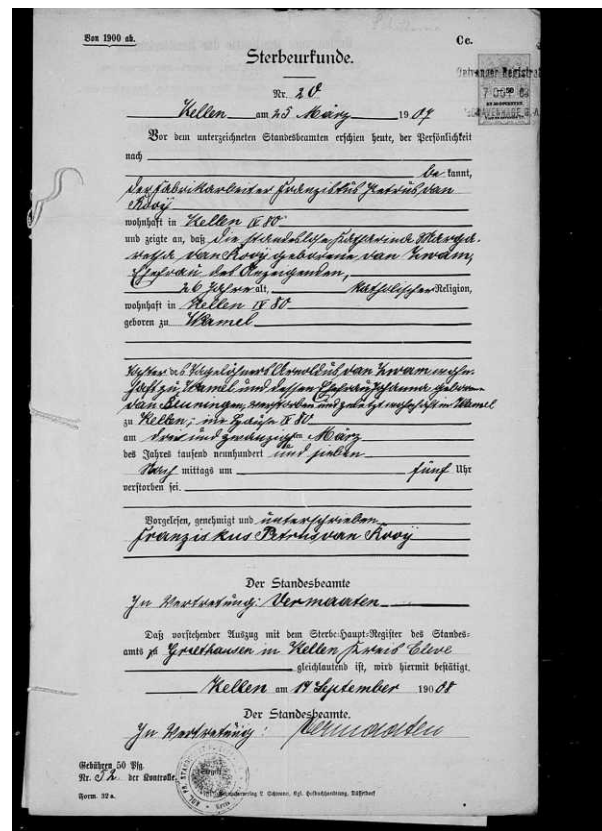 Von 1900 ab.
Cc.
Sterbeurkunde.
Nr. 20
Kellen am 25 März 1907
Vor dem unterzeichneten Standesbeamten erschien heute, der Persönlichkeit
nach
be kannt,
der Fabrikarbeiter Franziskus Petrus van
Rooij
wohnhaft in Kellen IV 80
und zeigte an, daß die standeslose Katharina Marga-
retha van Rooij geborene van Zwam,
Ehefrau des Anzeigenden,
26 Jahre alt, katholischer Religion,
wohnhaft in Kellen IV 80
geboren zu Wamel
Tochter des Tagelöhners Arnoldus van Zwam wohn-
haft zu Wamel und dessen Ehefrau Johanna geborene
van verstorben und zuletzt wohnhaft in Wamel
zu Kellen, im Hause IV 80
am drei und zwanzigsten März
des Jahres tausend neunhundert und sieben
Nach mittags um fünf Uhr
verstorben sei.
Vorgelesen, genehmigt und unterschrieben
Franziskus Petrus van Rooij
Der Standesbeamte
In Vertretung: Vermaaten
Daß vorstehender Auszug mit dem Sterbe-Haupt-Register des Standes-
amts zu Griethausen in Kellen Kreis Cleve
gleichlautend ist, wird hiermit bestätigt.
Kellen am 14 September 1908
Der Standesbeamte.
In Vertretung: Vermaaten
Gebühren 50 Pfg.
Nr. 52 der Kontrolle.
Form. 32a.
L. Schwann, Kgl. Hofbuchhandlung, Düsseldorf